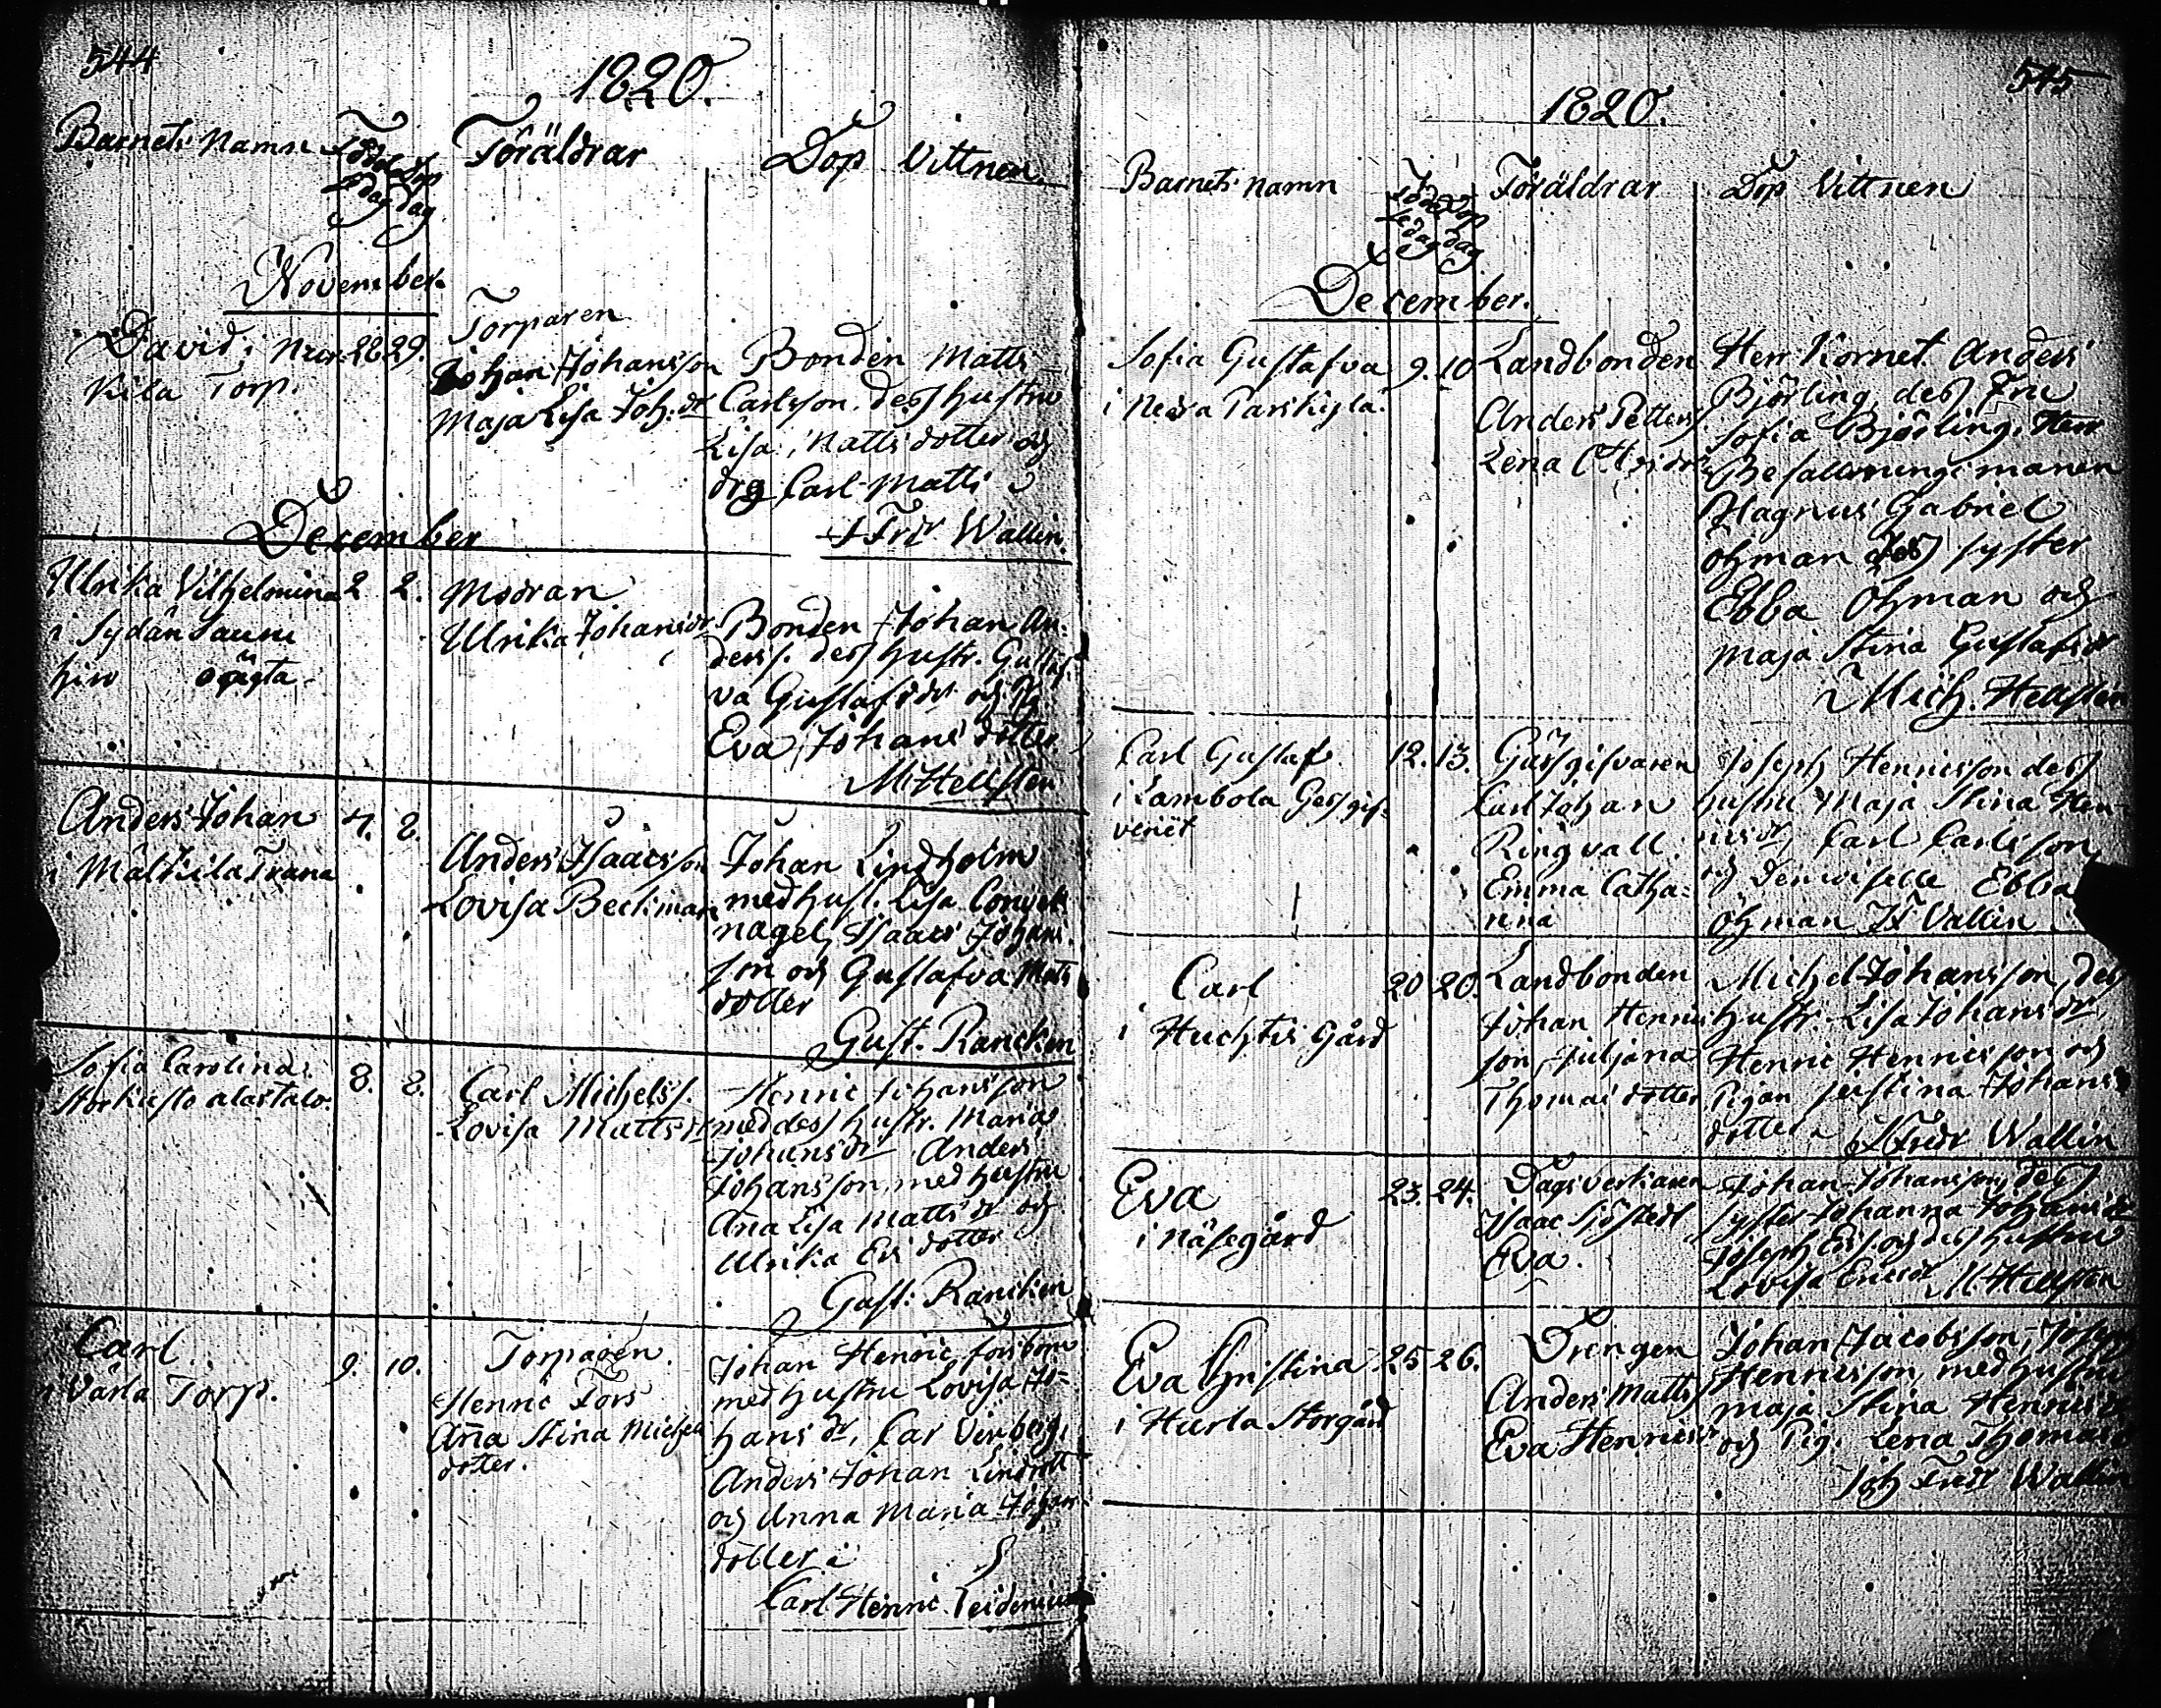 544
1820.
Barnets Namn
Födelse dag
Dop dag
Föräldrar
Dop Vittnen
November.
David, i
Kila Torp.
28. 29.
Torparen
Johan Johansson
Maja Lisa Joh. dr
Bonden Matts
Carlsson, dess hustru
Lisa Matts dotter och
drg Carl Matts
Fredr Wallin.
December
Ulrika Vilhelmina
i Sydänsaum
hiro oägta
2 2.
Modran
Ulrika Johansdr
Bonden Johan An-
derss. dess hustr. Gustaf-
va Gustafsdr och
Eva Johans dotter.
M Hellsten
Anders Johan
i Mälkila Trana
7. 8.
Anders Isaacsson
Lovisa Beckman
Johan Lindholm
med hust. Lisa
nagel, Isaac Johans
son och Gustafva Mats
dotter
Gust. Rancken
Sofia Carolina
Storkusto alastalo.
8. 8.
Carl Michelss.
Lovisa Mattsdr
Henric Johansson
med dess hustr. Maria
Johansdr Anders
Johansson, med hustru
Ana Lisa Matts dr och
Ulrika Ers dotter
Gust: Rancken
Carl
i Värla Torp.
9. 10.
Torparen.
Henric Fors
Aña Stina Michels
dotter.
Johan Henric Forsbom
med hustru Lovisa Jo-
hans dr, Car Virberg,
Anders Johan Lindrott
och Anna Maria Johans
dotter
Carl Henric
545
1820.
Barnets namn
Födelse dag
Dop dag
Föräldrar
Dop Vittnen
December.
Sofia Gustafva
i Nedra Parskyla.
9. 10
Landbonden
Anders Petterss
Lena
Herr Kornet Anders
Björling, dess Fru
Sofia Björling, Herr
Befallningsmanen
Magnus Gabriel
Öhman dess syster
Ebba Öhman och
Maja Stina Gustafsdr
Mich. Hellsten
Carl Gustaf
i Lambola Gesgif-
veriet
12. 13.
Gästgifvaren
Carl Johan
Ringvall.
Emma Catha-
rina
Joseph Henricsson dess
hustru Maja Stina Hen-
ricsdr, Carl Carlsson
och Demoiselle Ebba
Öhman JF Vallin
Carl
i Huchtis Gård
20 20.
Landbonden
Johan Henrics
son, Juljana
Thomas dotter
Michel Johansson, dess
hustr. Lisa Johansdr
Henric Henricsson och
Pigan Justina Johans
dotter
JFredr Wallin
Eva
i Näsegård
23. 24.
Dagsverkaren
Isaac Sjöstedt
Eva.
Johan Johansson, dess
syster Johanna Johansdr
Joseph Erss. och dess hustru
Lovisa Ericsdr M Hellsten
Eva Christina
i Hurla Storgård
25 26.
Drengen
Anders Matts
Eva Henricsdr
Johan Jacobsson, Joseph
Henricsson, med hustru
Maja Stina Henricsdr
och Pig. Lena Thomasd
Joh Fredr Wallin